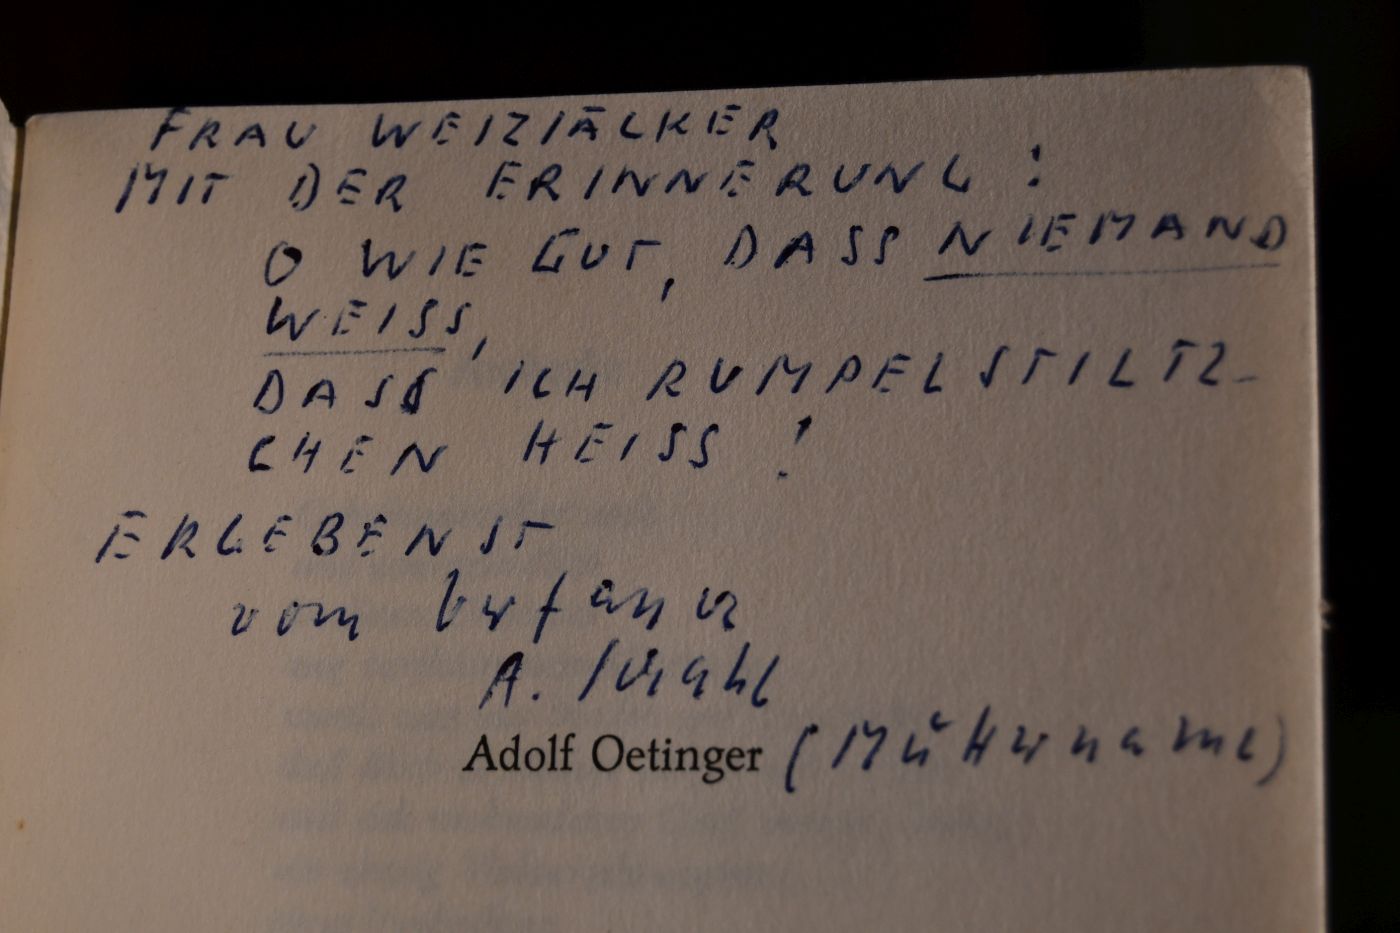 FRAU WEIZIÄCKER
MIT DER ERINNERUNG:
O WIE GUT, DASS NIEMAND
WEISS,
DASS ICH RUMPELSTILTZ-
CHEN HEISS!
ERGEBENST
vom Verfasser
A.
Adolf Oetinger (Müttername)